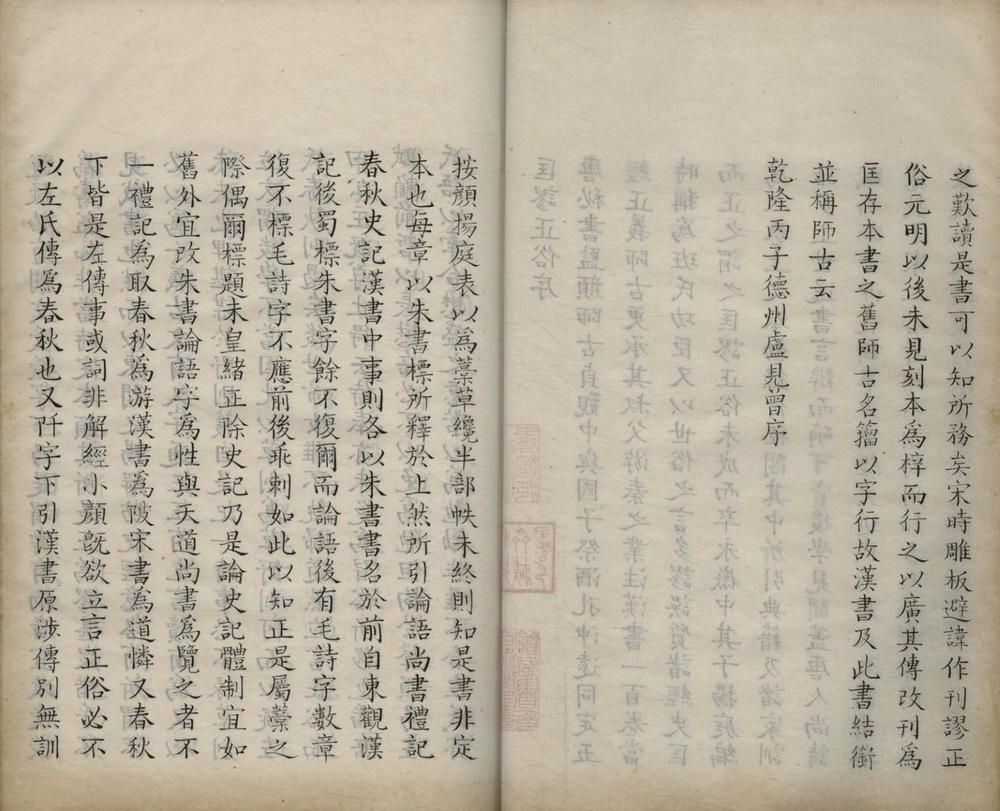 之歎讀是書可以知所務矣宋時雕板避諱作刊謬正
俗元明以後未見刻本為梓而行之以廣其傳改刊為
匡存本書之舊師古名籀以字行故漢書及此書結銜
並稱師古云
乾隆丙子德州盧見曾序
按顏揚庭表以為藁草纔半部帙未終則知是書非定
本也每章以朱書標所釋於上然所引論語尚書禮記
春秋史記漢書中事則各以朱書書名於前自東觀漢
記後蜀標朱書字餘不復爾而論語後有毛詩字數章
復不標毛詩字不應前後乖刺如此以知正是屬藁之
際偶爾標題未皇緒正除史記乃是論史記體制宜如
舊外宜改朱書論語字為性與天道尚書為覽之者不
一禮記為取春秋為游漢書為陂宋書為道憐又春秋
下皆是左傳事或詞非解經小顏既欲立言正俗必不
以左氏傳為春秋也又阡字下引漢書原涉傳別無訓